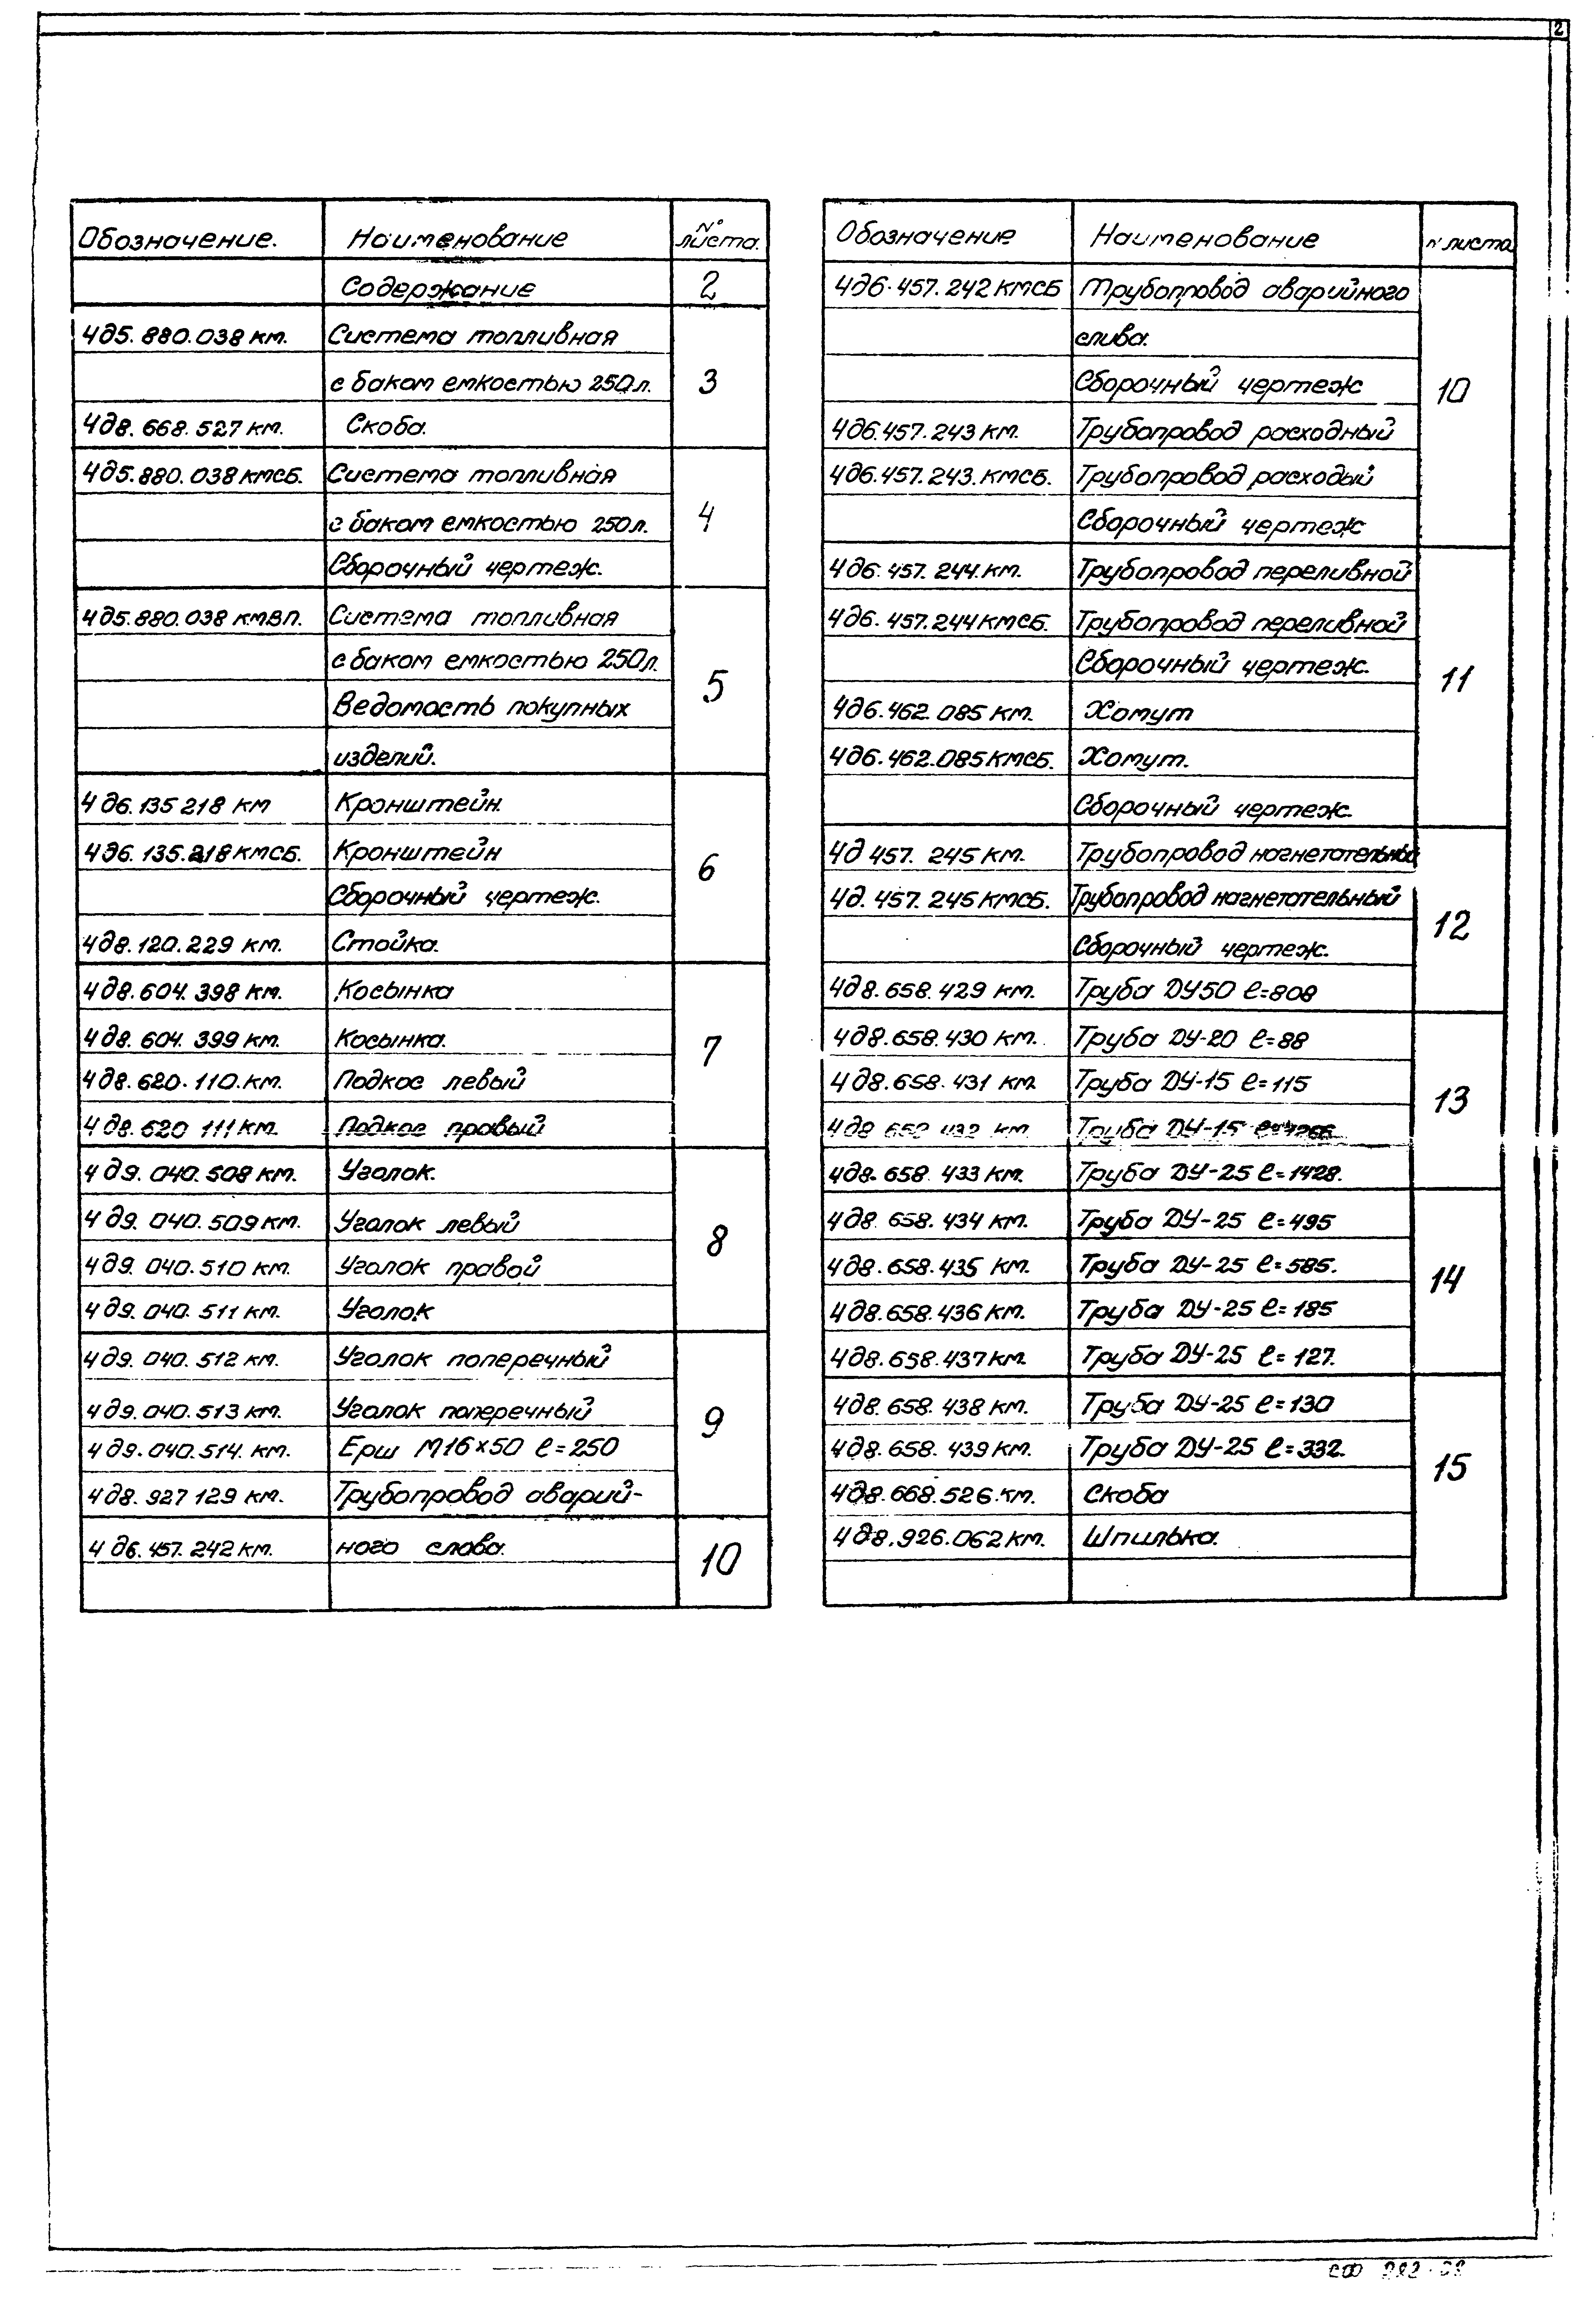 2
Обозначение. Наименование № листа.
Содержание 2
4д5.880.038 км. Система топливная
с баком емкостью 250л. 3
4д8.668.527 км. Скоба.
4д5.880.038 кмсб. Система топливная
с баком емкостью 250л. 4
Сборочный чертеж.
4д5.880.038 кмвп. Система топливная
с баком емкостью 250л.
Ведомость покупных 5
изделий.
4д6.135 218 км Кронштейн.
4д6.135.218 кмсб. Кронштейн 6
Сборочный чертеж.
4д8.120.229 км. Стойка.
4д8.604.398 км. Косынка
4д8.604.399 км. Косынка. 7
4д8.620.110.км. Подкос левый
4д8.620 111 км. Подкос правый
4д9.040.508 км. Уголок.
4д9.040.509 км. Уголок левый 8
4д9.040.510 км. Уголок правой
4д9.040.511 км. Уголок
4д9.040.512 км. Уголок поперечный
4д9.040.513 км. Уголок поперечный 9
4д9.040.514. км. Ерш М16×50 ℓ=250
4д8.927 129 км. Трубопровод аварий-
4д6.457.242 км. ного слова. 10
Обозначение Наименование № листа
4д6.457.242 кмсб Трубопровод аварийного
слива.
Сборочный чертеж 10
4д6.457.243 км. Трубопровод расходный
4д6.457.243.кмсб. Трубопровод расходый
Сборочный чертеж
4д6.457.244.км. Трубопровод переливной
4д6.457.244 кмсб. Трубопровод переливной
Сборочный чертеж. 11
4д6.462.085 км. Хомут
4д6.462.085 кмсб. Хомут.
Сборочный чертеж.
4д 457.245 км. Трубопровод нагнетательный
4д.457.245 кмсб. Трубопровод нагнетательный 12
Сборочный чертеж.
4д8.658.429 км. Труба ДУ50 ℓ=808
4д8.658.430 км. Труба ДУ-20 ℓ=88
4д8.658.431 км Труба ДУ-15 ℓ=115 13
4д8 658 432 км Труба ДУ-15
4д8.658.433 км. Труба ДУ-25 ℓ=1428.
4д8.658.434 км. Труба ДУ-25 ℓ=495
4д8.658.435 км. Труба ДУ-25 ℓ=585. 14
4д8.658.436 км. Труба ДУ-25 ℓ=185
4д8.658.437 км. Труба ДУ-25 ℓ=127.
4д8.658.438 км. Труба ДУ-25 ℓ=130
4д8.658.439 км. Труба ДУ-25 ℓ=332. 15
4д8.668.526.км. Скоба
4д8.926.062 км. Шпилька.